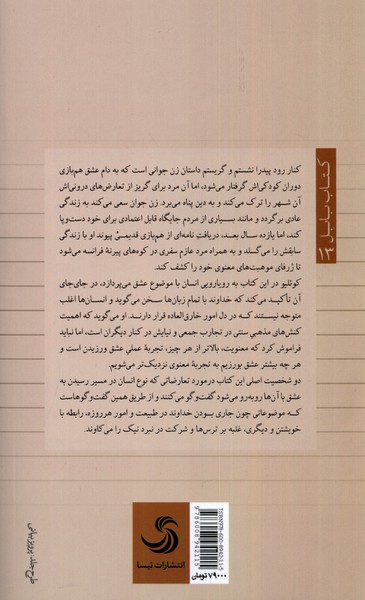 کتاب نایاب
کنار رود پیدرا نشستم و گریستم داستان زن جوانی است که به دام عشق هم‌بازی
دوران کودکی‌اش گرفتار می‌شود، اما آن مرد برای گریز از تعارض‌های درونی‌اش
آن شهر را ترک می‌کند و به دین پناه می‌برد. زن جوان سعی می‌کند به زندگی
عادی برگردد و مانند بسیاری از مردم جایگاه قابل اعتمادی برای خود دست‌وپا
کند، اما یازده سال بعد، دریافتِ نامه‌ای از هم‌بازی قدیمی‌ْ پیوند او با زندگی
سابقش را می‌گسلد و به همراه مرد عازم سفری در کوه‌های پیرنۀ فرانسه می‌شود
تا ژرفای موهبت‌های معنوی خود را کشف کند.
کوئلیو در این کتاب به رویارویی انسان با موضوع عشق می‌پردازد، در جای‌جای
آن تأکید می‌کند که خداوند با تمام زبان‌ها سخن می‌گوید و انسان‌ها اغلب
متوجه نیستند که در دل امور خارق‌العاده قرار دارند. او می‌گوید که اهمیت
کنش‌های مذهبی سنتی در تجارب جمعی و نیایش در کنار دیگران است، اما نباید
فراموش کرد که معنویت، بالاتر از هر چیز، تجربۀ عملیِ عشق ورزیدن است و
هر چه بیشتر عشق بورزیم به تجربۀ معنوی نزدیک‌تر می‌شویم.
دو شخصیت اصلی این کتاب درمورد تعارضاتی که نوع انسان در مسیر رسیدن به
عشق با آن‌ها روبه‌رو می‌شود گفت‌وگو می‌کنند و از طریق همین گفت‌وگوهاست
که موضوعاتی چون جاری بودن خداوند در طبیعت و امور هرروزه، رابطه با
خویشتن و دیگری، غلبه بر ترس‌ها و شرکت در نبرد نیک را می‌کاوند.
انتشارات تیسا
ISBN:978-600-8942-11-5
9786008942115
۷۹۰۰۰ تومان
طرح جلد: پرویز بیانی